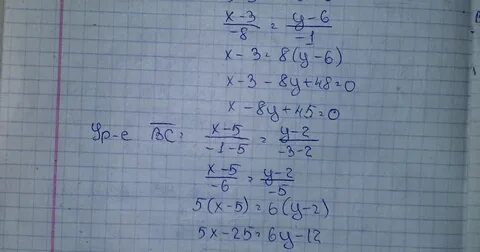 x-3/-8 = y-6/-1
x-3=8(y-6)
x-3-8y+48=0
x-8y+45=0
Ур-е BC: x-5/-1-5 = y-2/-3-2
x-5/-6 = y-2/-5
5(x-5)=6(y-2)
5x-25=6y-12